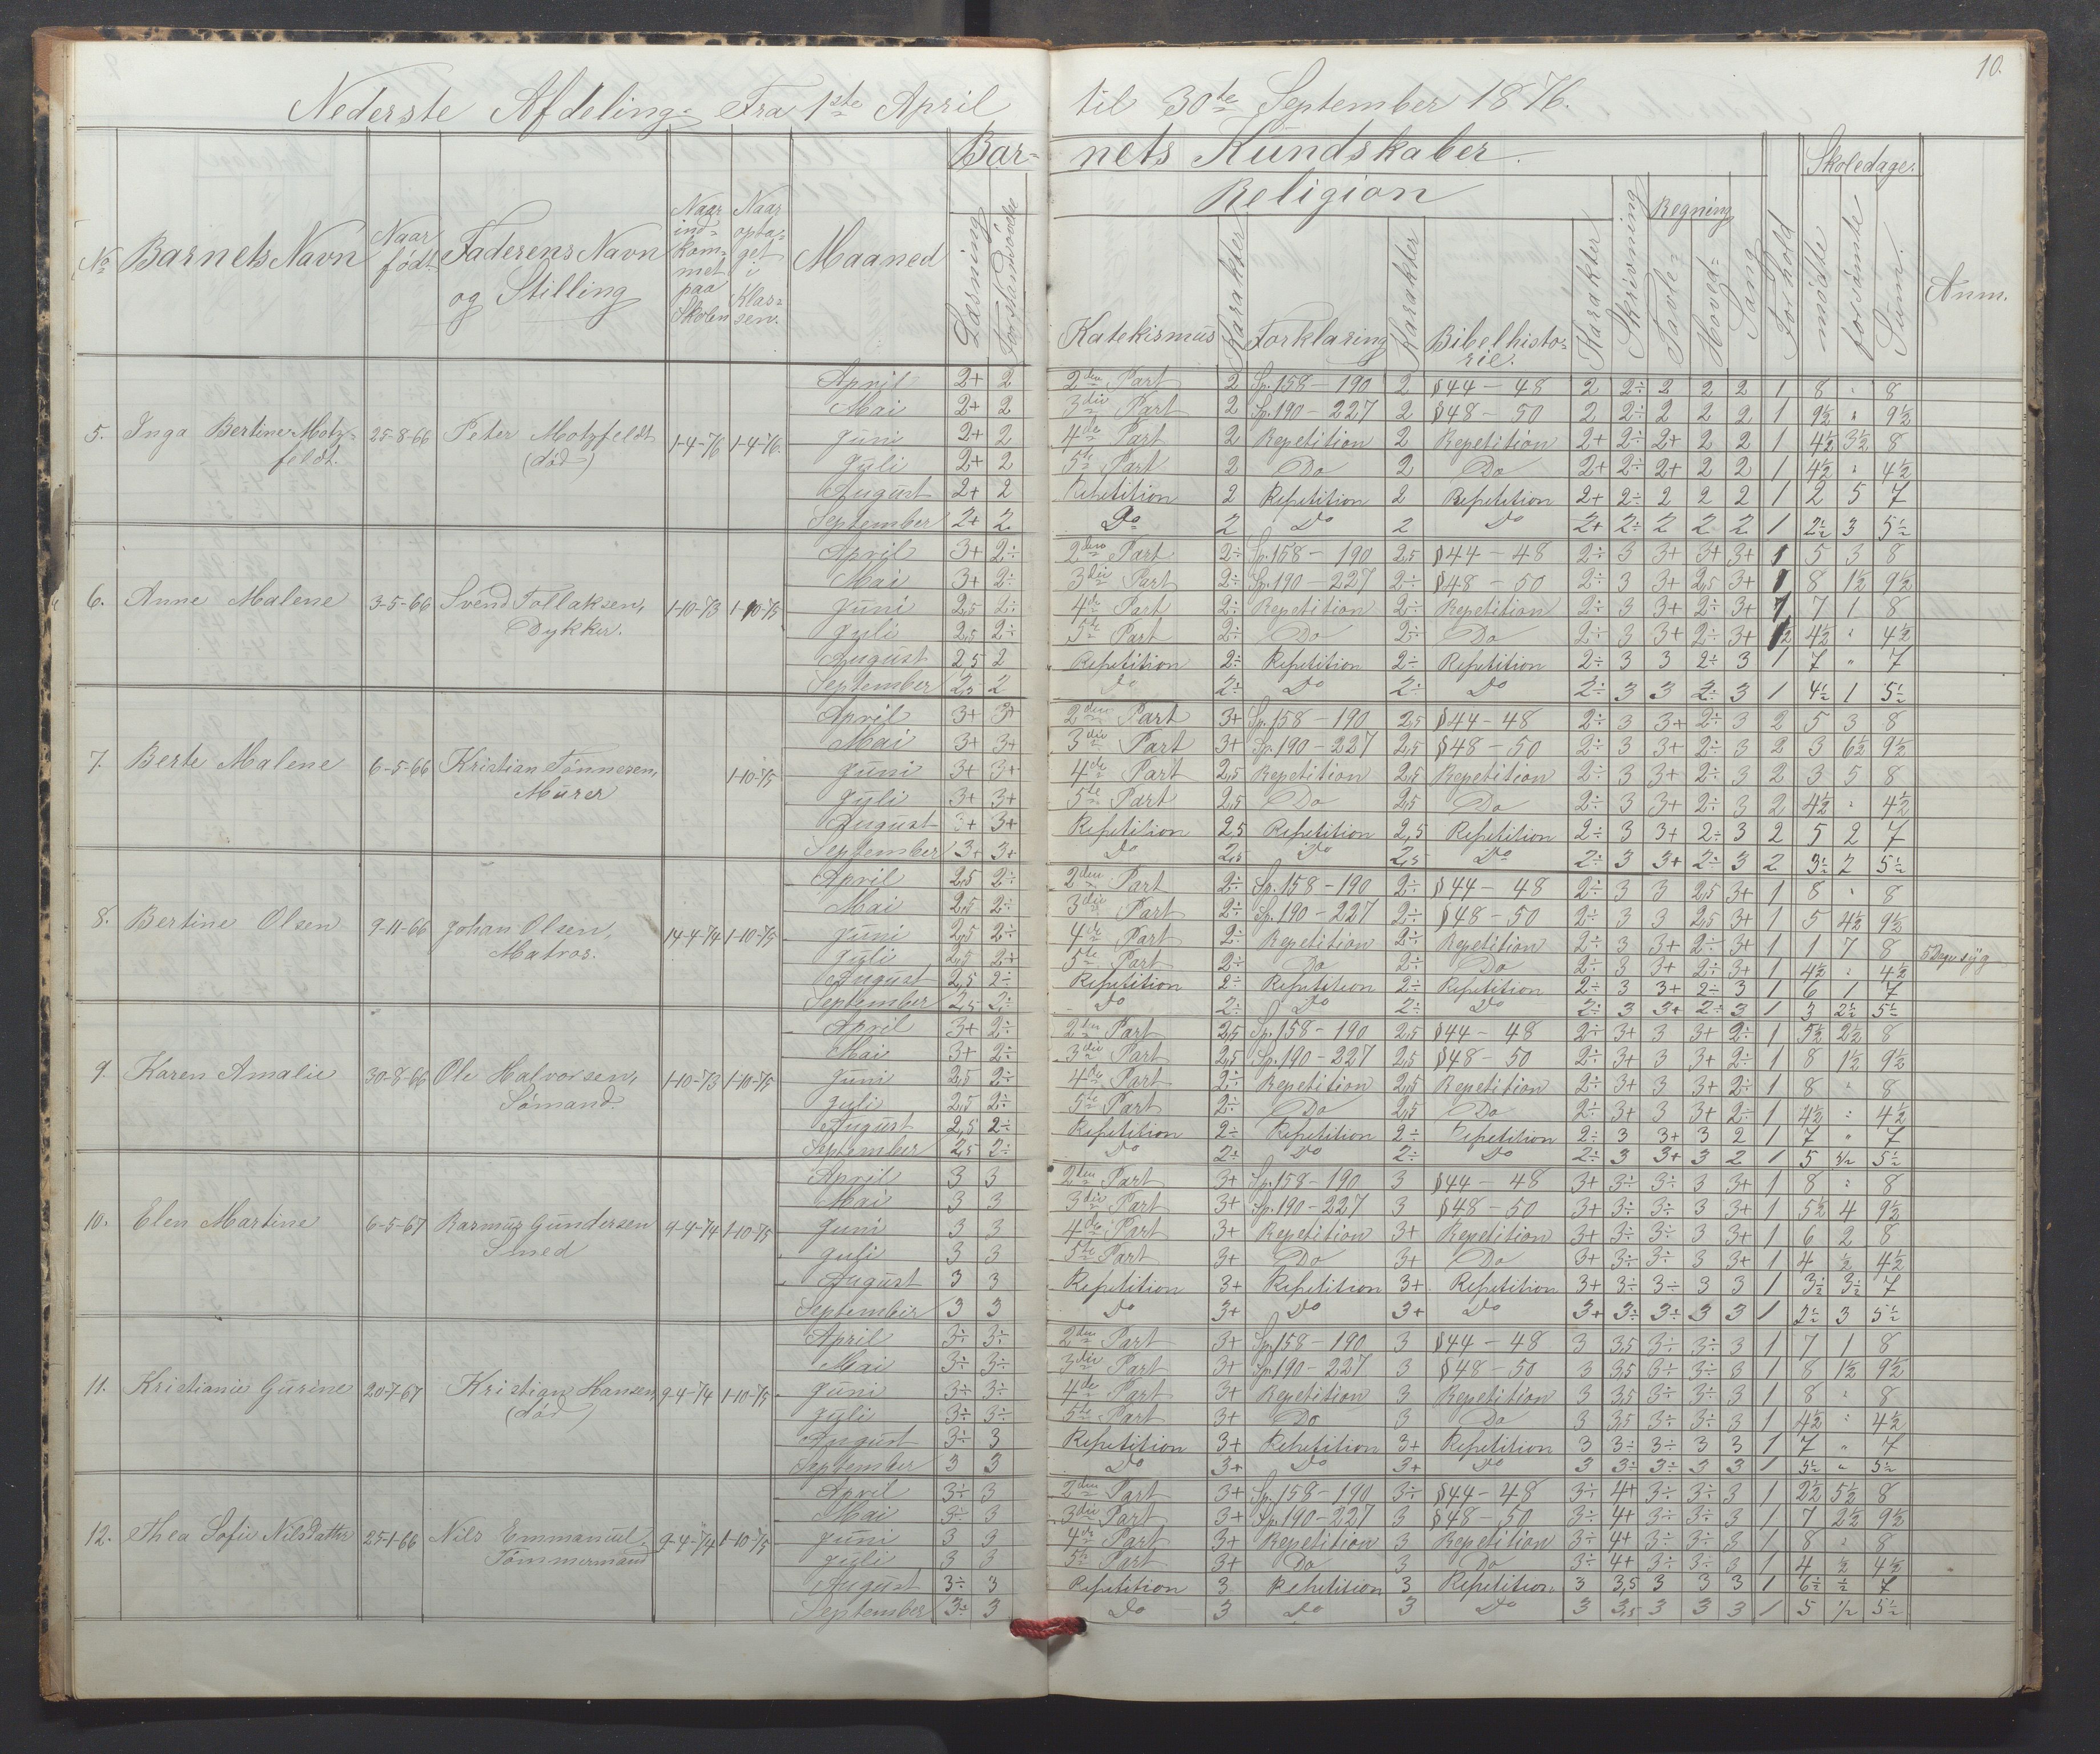 10.
Nederste Afdeling. Fra 1ste April til 30te September 1876.
Barnets Kundskaber. Skoledage.
Religion Regning
No Barnets Navn Naar født Faderens Navn og Stilling Naar indkommet paa Skolen Naar optaget i Klassen. Maaned Læsning Forstandsøvelse Katekismus Karakter Forklaring Karakter Bibelhistorie. Karakter Skrivning Tavle- Hoved- Sang Forhold mødte forsømte Sum. Anm.
5. Inga Bertine Motzfeldt. 25-8-66 Peter Motzfeldt (død) 1-4-76 1-4-76.
April 2+ 2 2den Part 2 Sp. 158-190 2 §44-48 2 2÷ 2 2 2 1 8 " 8
Mai 2+ 2 3die Part 2 Sp. 190-227 2 §48-50 2 2÷ 2 2 2 1 9½ " 9½
Juni 2+ 2 4de Part 2 Repetition 2 Repetition 2+ 2÷ 2+ 2 2 1 4½ 3½ 8
Juli 2+ 2 5te Part 2 Do 2 Do 2+ 2÷ 2+ 2 2 1 4½ " 4½
August 2+ 2 Repetition 2 Repetition 2 Repetition 2+ 2÷ 2 2 2 1 2 5 7
September 2+ 2 Do 2 Do 2 Do 2+ 2÷ 2 2 2 1 2½ 3 5½
6. Anne Malene 3-5-66 Svend Tollaksen, Dykker. 1-10-73 1-10-75
April 3+ 2÷ 2den Part 2÷ Sp. 158-190 2,5 §44-48 2÷ 3 3+ 3+ 3+ 1 5 3 8
Mai 3+ 2÷ 3die Part 2÷ Sp. 190-227 2÷ §48-50 2÷ 3 3+ 2,5 3+ 1 8 1½ 9½
Juni 2,5 2÷ 4de Part 2÷ Repetition 2÷ Repetition 2÷ 3 3+ 2÷ 3+ 7 1 8
Juli 2,5 2÷ 5te Part 2÷ Do 2÷ Do 2÷ 3 3+ 2÷ 3+ 4½ " 4½
August 2,5 2 Repetition 2÷ Repetition 2÷ Repetition 2÷ 3 3 2÷ 3 1 7 " 7
September 2,5 2 Do 2÷ Do 2÷ Do 2÷ 3 3 2÷ 3 1 4½ 1 5½
7. Berte Malene 6-5-66 Kristian Tønnesen, Murer 1-10-75
April 3+ 3+ 2den Part 3+ Sp. 158-190 2,5 §44-48 2÷ 3 3+ 2÷ 3 2 5 3 8
Mai 3+ 3+ 3die Part 3+ Sp. 190-227 2,5 §48-50 2÷ 3 3+ 2÷ 3 2 3 6½ 9½
Juni 3+ 3+ 4de Part 2,5 Repetition 2,5 Repetition 2÷ 3 3+ 2÷ 3 2 3 5 8
Juli 3+ 3+ 5te Part 2,5 Do 2,5 Do 2÷ 3 3+ 2÷ 3 2 4½ " 4½
August 3+ 3+ Repetition 2,5 Repetition 2,5 Repetition 2÷ 3 3+ 2÷ 3 2 5 2 7
September 3+ 3+ Do 2,5 Do 2,5 Do 2÷ 3 3+ 2÷ 3 2 3½ 2 5½
8. Bertine Olsen 9-11-66 Johan Olsen, Matros. 14-4-74 1-10-75
April 2,5 2÷ 2den Part 2÷ Sp. 158-190 2÷ §44-48 2÷ 3 3 2,5 3+ 1 8 " 8
Mai 2,5 2÷ 3die Part 2÷ Sp. 190-227 2÷ §48-50 2÷ 3 3 2,5 3+ 1 5 4½ 9½
Juni 2,5 2÷ 4de Part 2÷ Repetition 2÷ Repetition 2÷ 3 3+ 2÷ 3+ 1 1 7 8 5 Dage syg
Juli 2,5 2÷ 5te Part 2÷ Do 2÷ Do 2÷ 3 3+ 2÷ 3+ 1 4½ " 4½
August 2,5 2÷ Repetition 2÷ Repetition 2÷ Repetition 2÷ 3 3+ 2÷ 3 1 6 1 7
September 2,5 2÷ Do 2÷ Do 2÷ Do 2÷ 3 3+ 2÷ 3 1 3 2½ 5½
9. Karen Amalie 30-8-66 Ole Halvorsen, Sømand. 1-10-73 1-10-75
April 3+ 2÷ 2den Part 2,5 Sp. 158-190 2,5 §44-48 2÷ 3+ 3 3+ 2÷ 1 5½ 2½ 8
Mai 3+ 2÷ 3die Part 2,5 Sp. 190-227 2,5 §48-50 2÷ 3+ 3 3+ 2÷ 1 8 1½ 9½
Juni 2,5 2÷ 4de Part 2÷ Repetition 2,5 Repetition 2÷ 3+ 3 3+ 2÷ 1 8 " 8
Juli 2,5 2÷ 5te Part 2÷ Do 2,5 Do 2÷ 3+ 3 3+ 2÷ 1 4½ " 4½
August 2,5 2÷ Repetition 2÷ Repetition 2÷ Repetition 2÷ 3 3+ 3 2 1 7 " 7
September 2,5 2÷ Do 2÷ Do 2÷ Do 2÷ 3 3+ 3 2 1 5 ½ 5½
10. Elen Martine 6-5-67 Rasmus Gundersen Smed 9-4-74 1-10-75
April 3 3 2den Part 3+ Sp. 158-190 3 §44-48 3+ 3÷ 3÷ 3 3+ 1 8 " 8
Mai 3 3 3die Part 3+ Sp. 190-227 3 §48-50 3+ 3÷ 3÷ 3 3+ 1 5½ 4 9½
Juni 3 3 4de Part 3+ Repetition 3+ Repetition 3+ 3÷ 3÷ 3 3+ 1 6 2 8
Juli 3 3 5te Part 3+ Do 3+ Do 3+ 3÷ 3÷ 3 3+ 1 4 ½ 4½
August 3 3 Repetition 3+ Repetition 3+ Repetition 3+ 3÷ 3÷ 3 3 1 3½ 3½ 7
September 3 3 Do 3+ Do 3+ Do 3+ 3÷ 3÷ 3 3 1 2½ 3 5½
11. Kristianie Gurine 20-7-67 Kristian Hansen, (død) 9-4-74 1-10-75
April 3÷ 3÷ 2den Part 3+ Sp. 158-190 3 §44-48 3 3,5 3÷ 3÷ 3 1 7 1 8
Mai 3÷ 3÷ 3die Part 3+ Sp. 190-227 3 §48-50 3 3,5 3÷ 3÷ 3 1 8 1½ 9½
Juni 3÷ 3÷ 4de Part 3+ Repetition 3 Repetition 3 3,5 3÷ 3÷ 3 1 8 " 8
Juli 3÷ 3÷ 5te Part 3+ Do 3 Do 3 3,5 3÷ 3÷ 3 1 4½ " 4½
August 3÷ 3 Repetition 3+ Repetition 3+ Repetition 3 3÷ 3÷ 3 3 1 7 " 7
September 3 3 Do 3+ Do 3+ Do 3 3÷ 3÷ 3 3 1 5½ " 5½
12. Thea Sofie Nilsdatter 25-1-66 Nils Emmanuel, Tømmermand 9-4-74 1-10-75
April 3÷ 3 2den Part 3+ Sp. 158-190 3÷ §44-48 3÷ 4+ 3÷ 3÷ 3 1 2½ 5½ 8
Mai 3÷ 3 3die Part 3+ Sp. 190-227 3 §48-50 3÷ 4+ 3÷ 3÷ 3 1 7 2½ 9½
Juni 3 3 4de Part 3+ Repetition 3 Repetition 3÷ 4+ 3÷ 3÷ 3 1 8 " 8
Juli 3 3 5te Part 3+ Do 3 Do 3÷ 4+ 3÷ 3÷ 3 1 4 ½ 4½
August 3÷ 3 Repetition 3 Repetition 3 Repetition 3 3,5 3 3 3 1 6½ ½ 7
September 3÷ 3 Do 3 Do 3 Do 3 3,5 3 3 3 1 5 ½ 5½